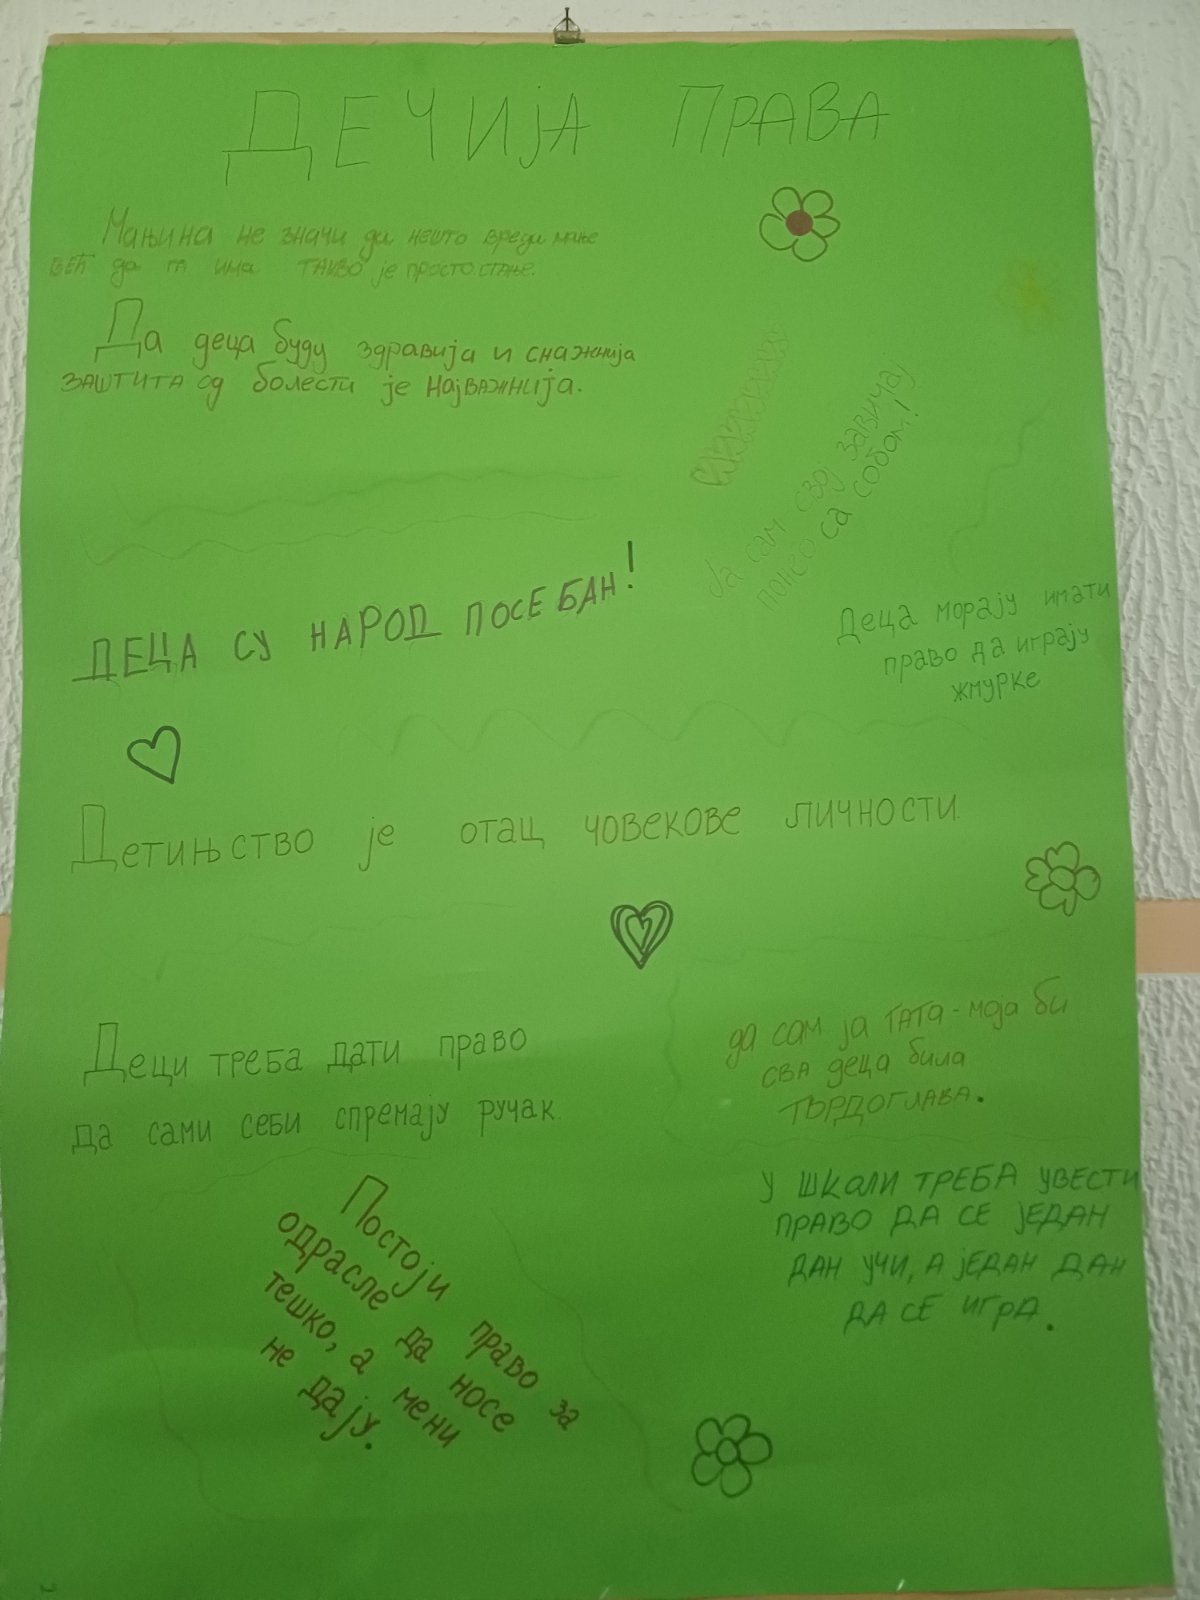 ДЕЧИЈА ПРАВА
Мањина не значи да нешто вреди мање
већ да га има такво је просто стање.
Да деца буду здравија и снажнија
заштита од болести је најважнија.
Ја сам свој завичај
понео са собом!
ДЕЦА СУ НАРОД ПОСЕБАН!
Деца морају имати
право да играју
жмурке
Детињство је отац човекове личности.
Деци треба дати право
да сами себи спремају ручак.
да сам ја тата - моја би
сва деца била
тврдоглава.
У ШКОЛИ ТРЕБА УВЕСТИ
ПРАВО ДА СЕ ЈЕДАН
ДАН УЧИ, А ЈЕДАН ДАН
ДА СЕ ИГРА.
Постоји право за
одрасле да носе
тешко, а мени
не дају.